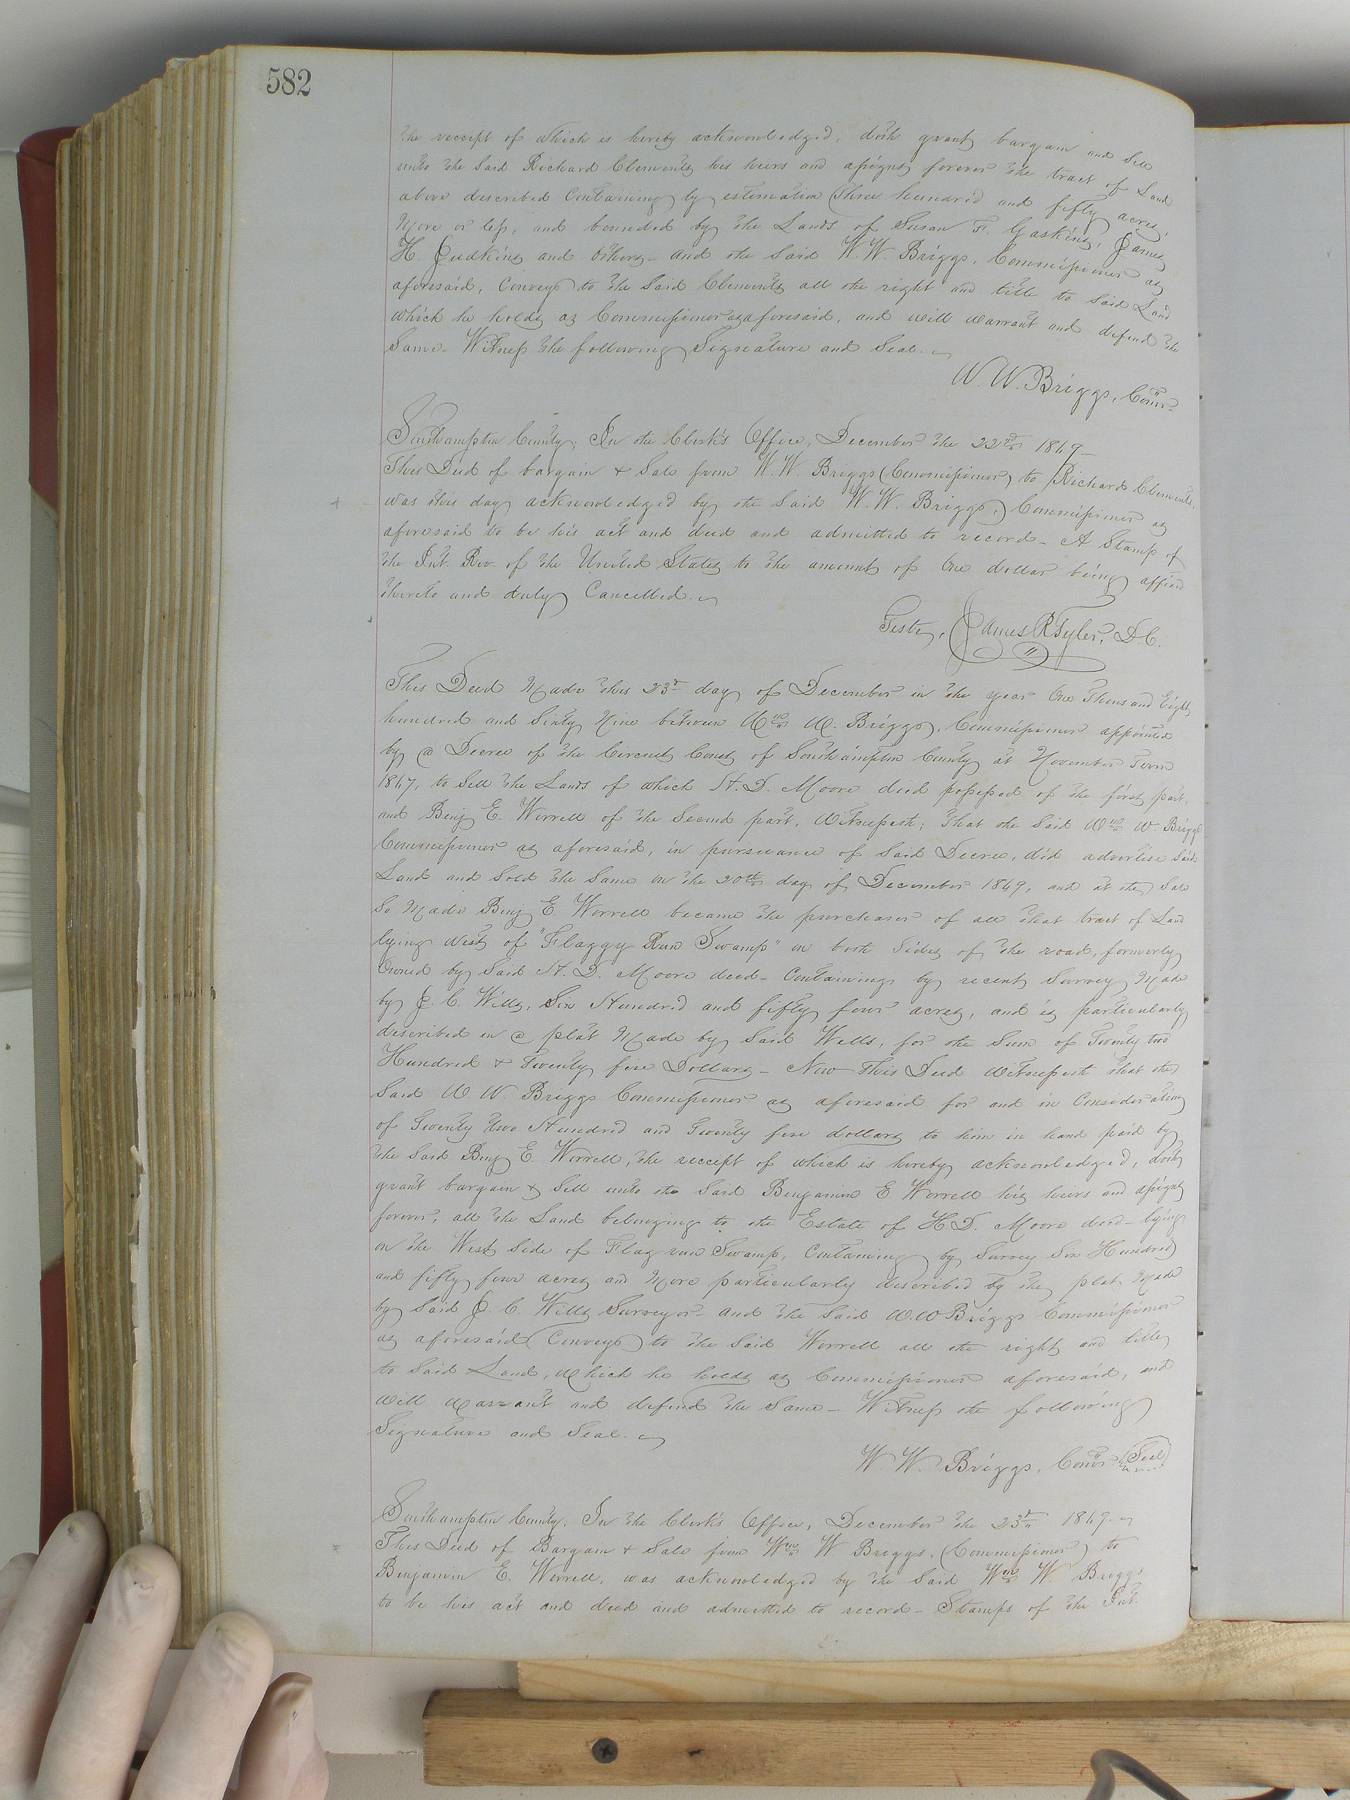 582
the receipt of which is hereby acknowledged, doth grant bargain and sell
unto the said Richard Clements his heirs and assigns forever the tract of Land
above described Containing by estimation (Three hundred and fifty acres,
More or less, and bounded by the Lands of Susan F. Gaskins, James
H. Judkins and others - and the said W. W. Briggs, Commissioner as
aforesaid, Conveys to the said Clements all the right and title to said Land
which he holds as Commissioner as aforesaid, and will warrant and defend the
Same. Witness the following Signature and Seal.
W. W. Briggs, Comr
Southampton County; In the Clerk's Office, December the 22nd 1869 -
This Deed of bargain & Sale from W. W. Briggs (Commissioner) to Richard Clements,
was this day acknowledged by the said W. W. Briggs, Commissioner as
aforesaid to be his act and deed and admitted to record - A Stamp of
the Int. Rev. of the United States to the amount of One dollar being affixed
thereto and duly Cancelled.
Teste, James R Tyler, D.C.
This Deed Made this 23rd day of December in the year One Thousand Eight
hundred and Sixty Nine between Wm W. Briggs, Commissioner appointed
by a Decree of the Circuit Court of Southampton County at November Term
1867, to Sell the Lands of which H. D. Moore decd possessed of the first part,
and Benj E. Worrell of the Second part, Witnesseth; That the Said Wm W. Briggs
Commissioner as aforesaid, in pursuance of Said Decree, did advertise Said
Land and Sold the Same on the 20th day of December 1869, and at the Sale
So Made Benj E. Worrell became the purchaser of all that tract of Land
lying West of "Flaggy Run Swamp" on both Sides of the road, formerly
Owned by Said H. D. Moore decd - Containing by recent Survey Made
by J. C. Wills, Six Hundred and fifty four acres, and is particularly
described in a plat Made by Said Wills, for the Sum of Twenty two
Hundred & Twenty five Dollars - Now This Deed Witnesseth that the
Said W W. Briggs Commissioner as aforesaid for and in Consideration
of Twenty two Hundred and Twenty five dollars to him in hand paid by
the Said Benj E. Worrell, the receipt of which is hereby acknowledged, doth
grant bargain & Sell unto the Said Benjamin E Worrell his heirs and assigns
forever, all the Land belonging to the Estate of H. D. Moore decd - lying
on the West Side of Flag run Swamp, Containing by Survey Six Hundred
and fifty four acres and More particularly described by the plat Made
by Said J. C. Wills Surveyor - and the Said W. W Briggs Commissioner
as aforesaid (Conveys) to the Said Worrell all the right and title
to Said Land, Which he holds as Commissioner aforesaid, and
will Warrant and defend the Same - Witness the following
Signature and Seal.
W W. Briggs, Comr (Seal)
Southampton County. In the Clerk's Office, December the 23rd 1869.
This Deed of Bargain & Sale from Wm W Briggs, (Commissioner) to
Benjamin E. Worrell, was acknowledged by the Said Wm W. Briggs
to be his act and deed and admitted to record - Stamps of the Int.